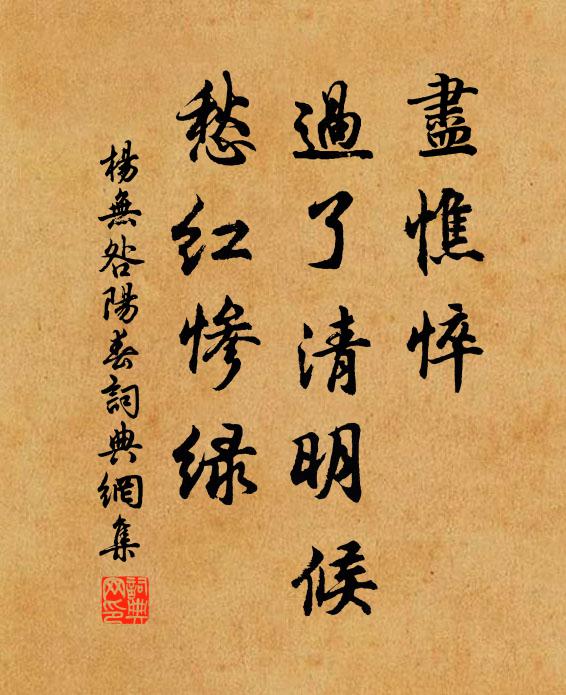 盡憔悴
過了清明候
愁紅慘綠
楊無咎陽春詞典網集
詞典
网印